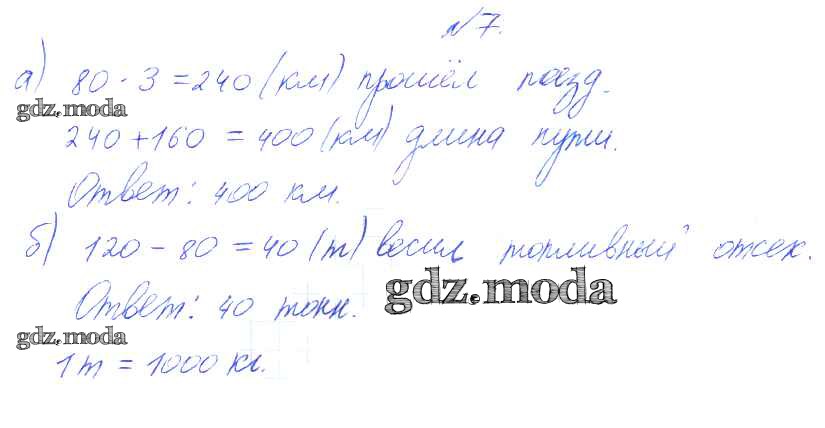 №7.
а) 80 · 3 = 240 (км) прошёл поезд.
gdz.moda
240 + 160 = 400 (км) длина пути.
Ответ: 400 км.
б) 120 - 80 = 40 (т) весил топливный отсек.
Ответ: 40 тонн.
gdz.moda
gdz.moda
1 т = 1000 кг.